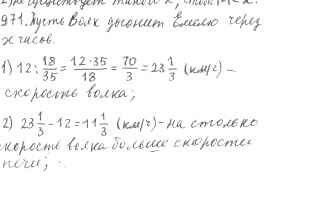 971. Пусть Волк догонит Емелю через
x часов.
1) 12 : 18/35 = 12·35/18 = 70/3 = 23 1/3 (км/ч) –
скорость волка;
2) 23 1/3 – 12 = 11 1/3 (км/ч) – на столько
скорость волка больше скорости
печи;